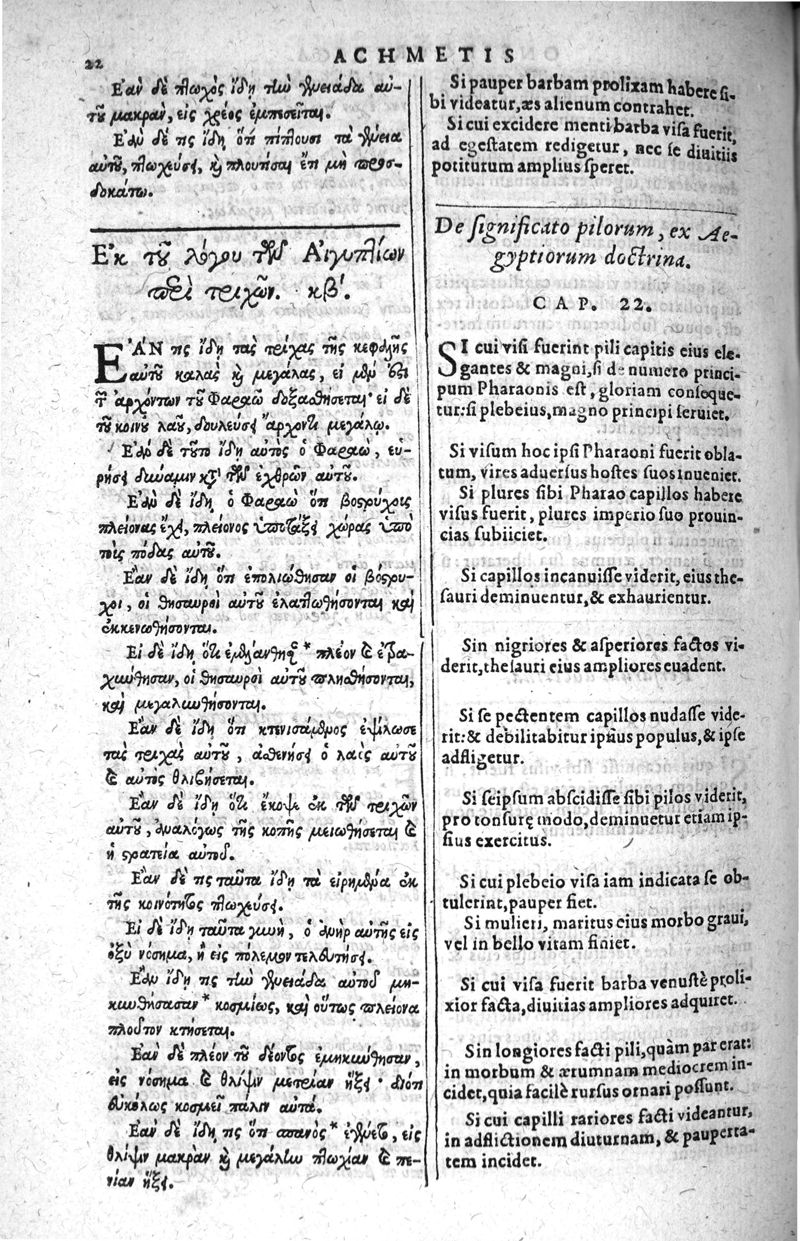 22
ACHMETIS
Ἐὰν δὲ πτωχὸς ἴδῃ τὴν γενειάδα αὐ-
τοῦ μακρὰν, εἰς χρέος ἐμπεσεῖται.
Ἐὰν δέ τις ἴδῃ ὅτι πίπτουσι τὰ γένεια
αὐτοῦ, πτωχεύσει, καὶ πλουτῆσαι ἔτι μὴ προσ-
δοκάτω.
Ἐκ τοῦ λόγου τῶν Αἰγυπτίων
περὶ τριχῶν. κβʹ.
ΕΑΝ τις ἴδῃ τὰς τρίχας τῆς κεφαλῆς
αὐτοῦ καλὰς καὶ μεγάλας, εἰ μέν ἐστι
τῶν ἀρχόντων τοῦ Φαραὼ δοξασθήσεται· εἰ δὲ
τοῦ κοινοῦ λαοῦ, δουλεύσει ἄρχοντι μεγάλῳ.
Ἐὰν δὲ τοῦτο ἴδῃ αὐτὸς ὁ Φαραὼ, εὑ-
ρήσει δύναμιν κατὰ τῶν ἐχθρῶν αὐτοῦ.
Ἐὰν δὲ ἴδῃ ὁ Φαραὼ ὅτι βοστρύχους
πλείονας ἔχει, πλείονας ὑποτάξει χώρας ὑπὸ
τοὺς πόδας αὐτοῦ.
Ἐὰν δὲ ἴδῃ ὅτι ἐπολιώθησαν οἱ βόστρυ-
χοι, οἱ θησαυροὶ αὐτοῦ ἐλαττωθήσονται καὶ
ἐκκενωθήσονται.
Εἰ δὲ ἴδῃ ὅτι ἐμελάνθησαν* πλέον καὶ ἐτρα-
χώθησαν, οἱ θησαυροὶ αὐτοῦ πληθήσονται,
καὶ μεγαλωθήσονται.
Ἐὰν δὲ ἴδῃ ὅτι κτενισάμενος ἐψίλωσε
τὰς τρίχας αὐτοῦ, ἀσθενήσει ὁ λαὸς αὐτοῦ
καὶ αὐτὸς θλιβήσεται.
Ἐὰν δὲ ἴδῃ ὅτι ἔκοψε ἐκ τῶν τριχῶν
αὐτοῦ, ἀναλόγως τῆς κοπῆς μειωθήσεται καὶ
ἡ στρατεία αὐτοῦ.
Ἐὰν δέ τις ταῦτα ἴδῃ τὰ εἰρημένα ἐκ
τῆς κοινότητος πτωχεύσει.
Εἰ δὲ ἴδῃ ταῦτα γυνὴ, ὁ ἀνὴρ αὐτῆς εἰς
ὀξὺ νόσημα, ἢ εἰς πόλεμον τελευτήσει.
Ἐὰν ἴδῃ τις τὴν γενειάδα αὐτοῦ μη-
κωθήσασαν* κοσμίως, καὶ οὕτως πλείονα
πλοῦτον κτήσεται.
Ἐὰν δὲ πλέον τοῦ δέοντος ἐμηκώθησαν,
εἰς νόσημα καὶ θλίψιν μετρίαν ἥξει· διότι
εὐκόλως κοσμεῖ πάλιν αὐτά.
Ἐὰν δὲ ἴδῃ τις ὅτι σπανὸς* ἐγένετο, εἰς
θλίψιν μακρὰν καὶ μεγάλην πτωχίαν καὶ πε-
νίαν ἥξει.
Si pauper barbam prolixam habere si-
bi videatur, æs alienum contrahet.
Si cui excidere menti barba visa fuerit,
ad egestatem redigetur, nec se divitiis
potiturum amplius speret.
De significato pilorum, ex Ae-
gyptiorum doctrina.
CAP. 22.
SI cui visi fuerint pili capitis eius ele-
gantes & magni, si de numero princi-
pum Pharaonis est, gloriam conseque-
tur: si plebeius, magno principi seruiet.
Si visum hoc ipsi Pharaoni fuerit obla-
tum, vires aduersus hostes suos inueniet.
Si plures sibi Pharao capillos habere
visus fuerit, plures imperio suo prouin-
cias subiiciet.
Si capillos incanuisse viderit, eius the-
sauri deminuentur, & exhaurientur.
Sin nigriores & asperiores factos vi-
derit, thesauri eius ampliores euadent.
Si se pectentem capillos nudasse vide-
rit: & debilitabitur ipsius populus, & ipse
adfligetur.
Si seipsum abscidisse sibi pilos viderit,
pro tonsuræ modo, deminuetur etiam ip-
sius exercitus.
Si cui plebeio visa iam indicata se ob-
tulerint, pauper fiet.
Si mulieri, maritus eius morbo graui,
vel in bello vitam finiet.
Si cui visa fuerit barba venustè proli-
xior facta, diuitias ampliores adquiret.
Sin longiores facti pili, quàm par erat:
in morbum & ærumnam mediocrem in-
cidet, quia facilè rursus ornari possunt.
Si cui capilli rariores facti videantur,
in adflictionem diuturnam, & pauperta-
tem incidet.